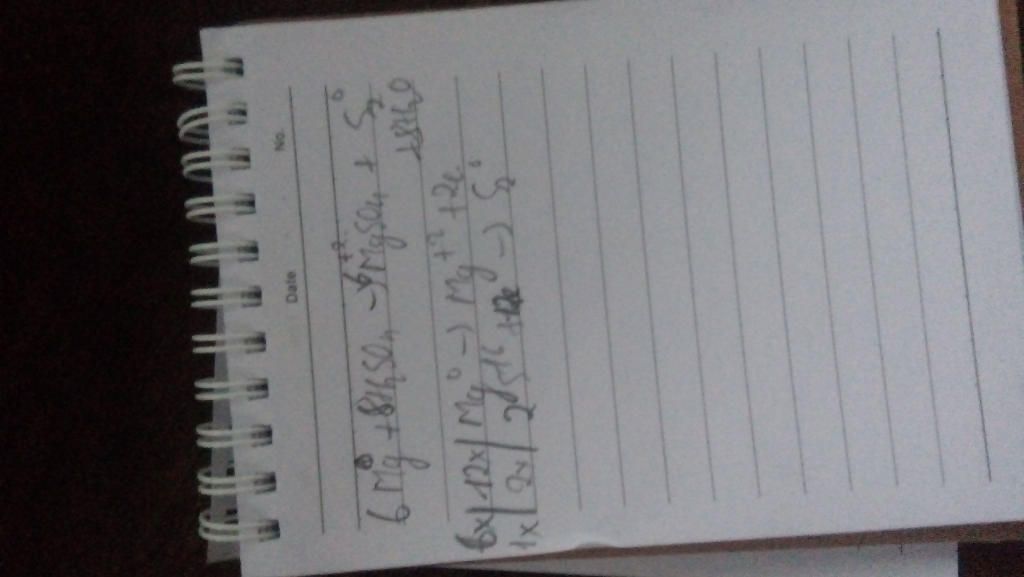 No.
Date
6Mg⁰ + 8H₂SO₄ → 6Mg⁺²SO₄ + S₂⁰
+ 8H₂O
6x | 12x | Mg⁰ → Mg⁺² + 2e
1x | 2x | 2S⁺⁶ + 12e → S₂⁰